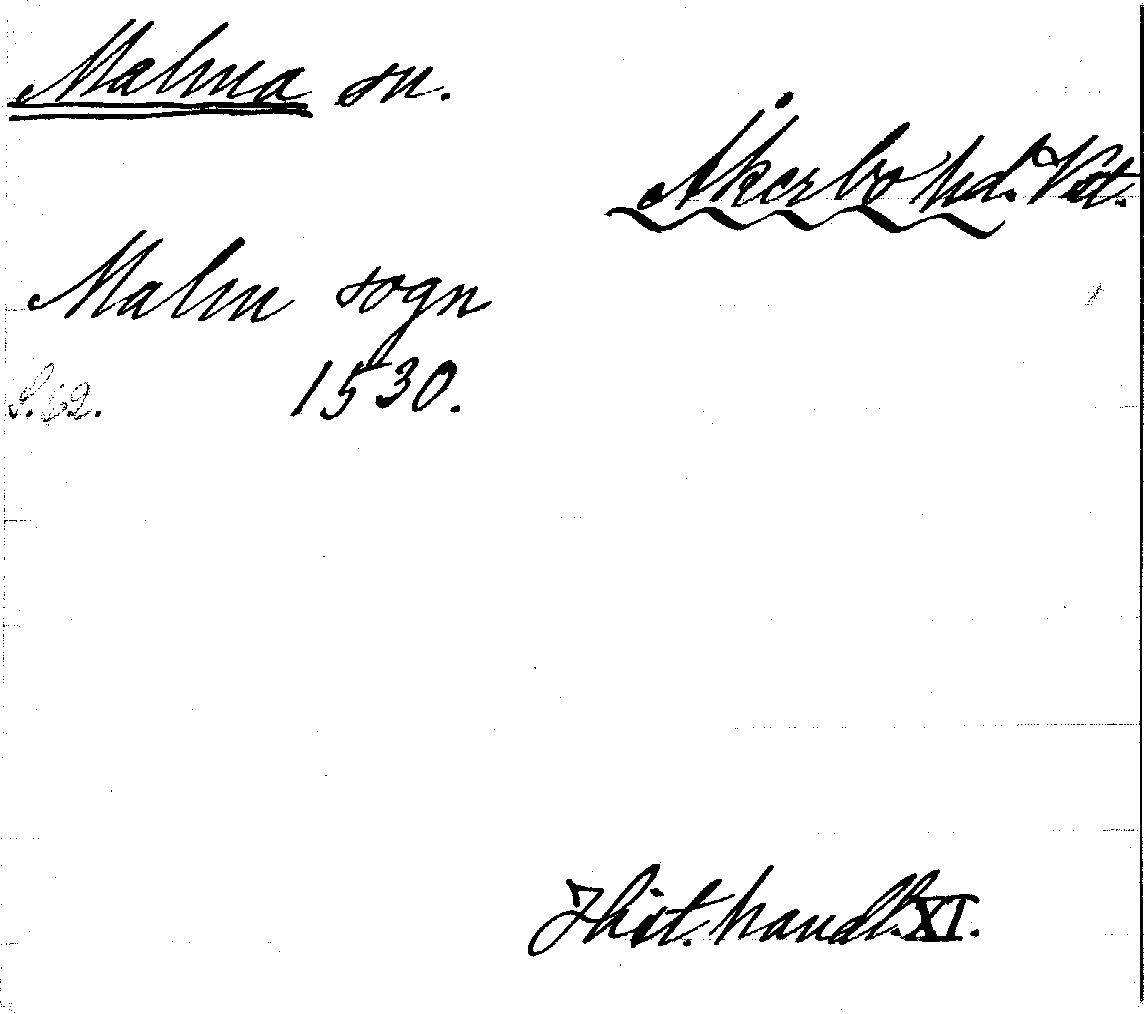 Malma sn.
Åkerbo hd. Vst.
Malm sogn
S. 62. 1530.
Hist. handl. XI.